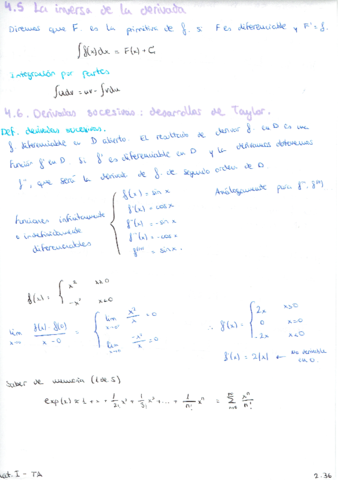 4.5 La inversa de la derivada
Diremos que F es la primitiva de f si F es diferenciable y F' = f.
∫f(x)dx = F(x) + C
integración por partes
∫udv = uv - ∫vdu
4.6. Derivadas sucesivas: desarrollos de Taylor.
Def. derivadas sucesivas.
f diferenciable en D abierto. El resultado de derivar f en D es una
función f' en D. Si f' es diferenciable en D y la derivamos obtenemos
f'', que será la derivada de f de segundo orden de D
Funciones infinitamente
o indefinidamente
diferenciables
f(x) = sin x
f'(x) = cos x
f''(x) = -sin x
f'''(x) = -cos x
f'''' = sin x.
Análogamente para f''', f
f(x) = { x² x≥0
-x² x<0
lim x→0 f(x) - f(0) / x - 0 = { lim x→0⁺ x²/x = 0
lim x→0⁻ -x²/x = 0
∴ f'(x) = { 2x x>0
0 x=0
-2x x<0
f'(x) = 2|x| ← no derivable en 0.
Saber de memoria
exp(x) = 1 + x + 1/2! x² + 1/3! x³ + ... + 1/n! xⁿ = Σ xⁿ/n!
I - TA
2-36